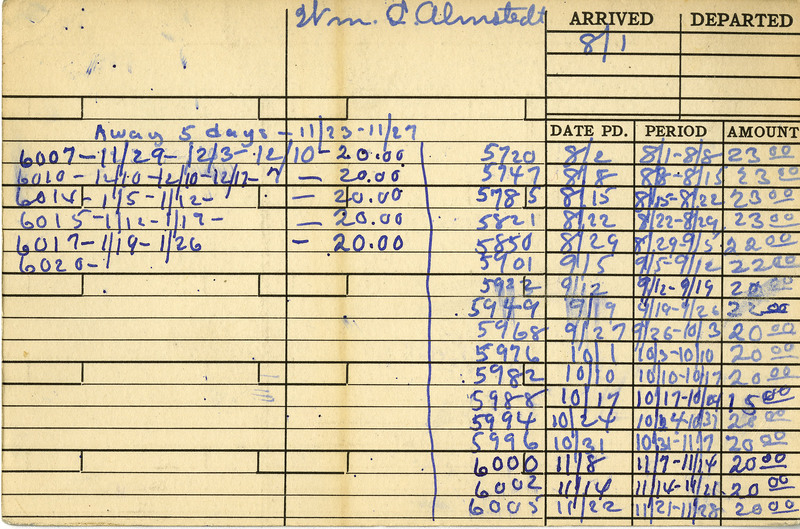 Wm. Q. Almstedt
ARRIVED DEPARTED
8/1
Away 5 days - 11/23-11/27
DATE PD. PERIOD AMOUNT
6007-11/29- 12/3-12/10- 20.00
6010-12/10-12/10-12/17-7 - 20.00
6014-1/5-1/12- - 20.00
6015-1/12-1/19- - 20.00
6017-1/19-1/26 - 20.00
6020-
5720 8/2 8/1-8/8 23 00
5747 8/8 8/8-8/15 23 00
5785 8/15 8/15-8/22 23 00
5821 8/22 8/22-8/29 23 00
5850 8/29 8/29-9/5 22 00
5901 9/5 9/5-9/12 22 00
5922 9/12 9/12-9/19 20 00
5949 9/19 9/19-9/26 22 00
5968 9/27 9/26-10/3 20 00
5976 10/1 10/3-10/10 20 00
5982 10/10 10/10-10/17 20 00
5988 10/17 10/17-10/24 15 00
5994 10/24 10/24-10/31 20 00
5996 10/31 10/31-11/7 20 00
6000 11/8 11/7-11/14 20 00
6002 11/14 11/14-11/21 20 00
6005 11/22 11/21-11/28 20 00